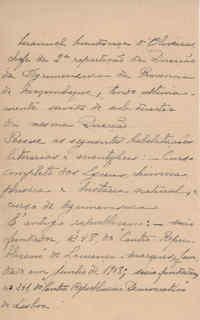 Manuel Mendonça d'Oliveira,
chefe da 2ª repartição da Direcção
da Agrimensura da Provincia
de Moçambique, tendo ultima-
mente servido de sub-director
da mesma Direcção.
Possue as seguintes habilitações
literarias e scientificas: — Curso
completo dos Lyceus, chimica,
physica e historia natural, e
curso de agrimensura.
É antigo republicano: — socio
fundador do Centro Repu-
blicano de Lourenço Marques, fun-
dado em junho de 1908; socio fundador
do Centro Republicano Democratico
de Lisboa.